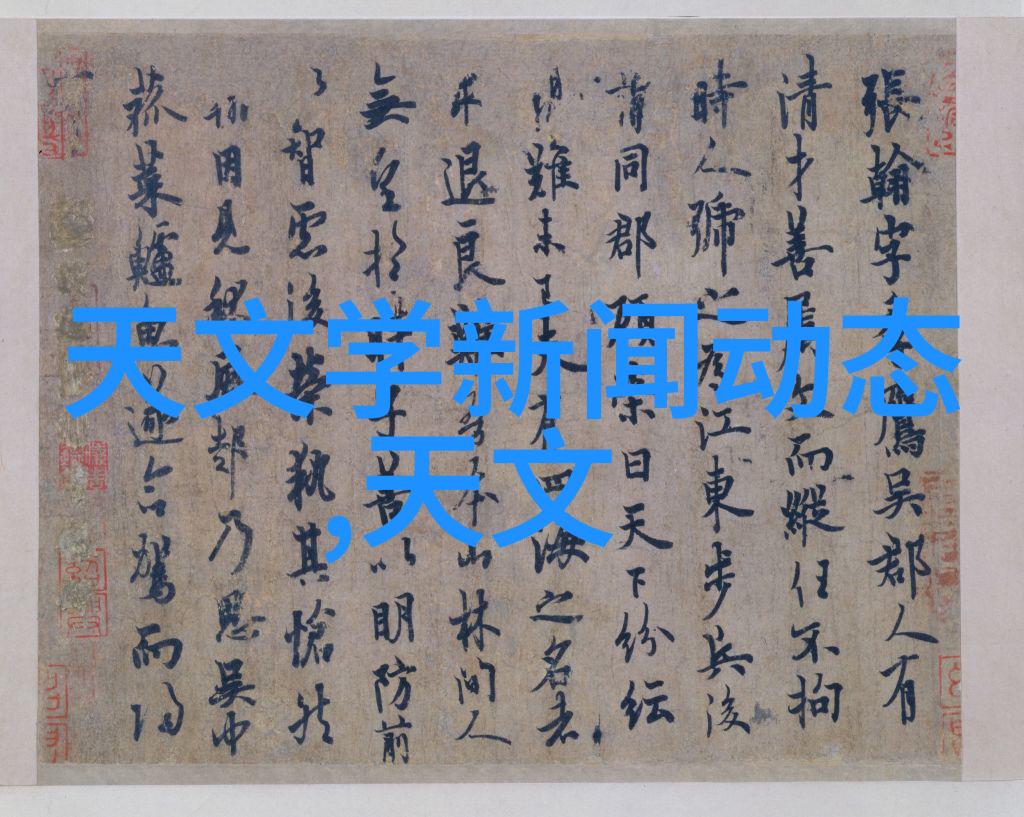 張翰字季鷹吳郡人有
清才善屬文而縱任不拘
時人號之為江東步兵後
謂同郡顧榮曰天下紛紜
難未已夫有四海之名者
求退良難吾本山林間人
無望於時子善以明防前
智慮後榮執其愴然
翰因見秋風起乃思吳中
菰菜鱸魚遂命駕而歸
天文学新闻动态
,天文